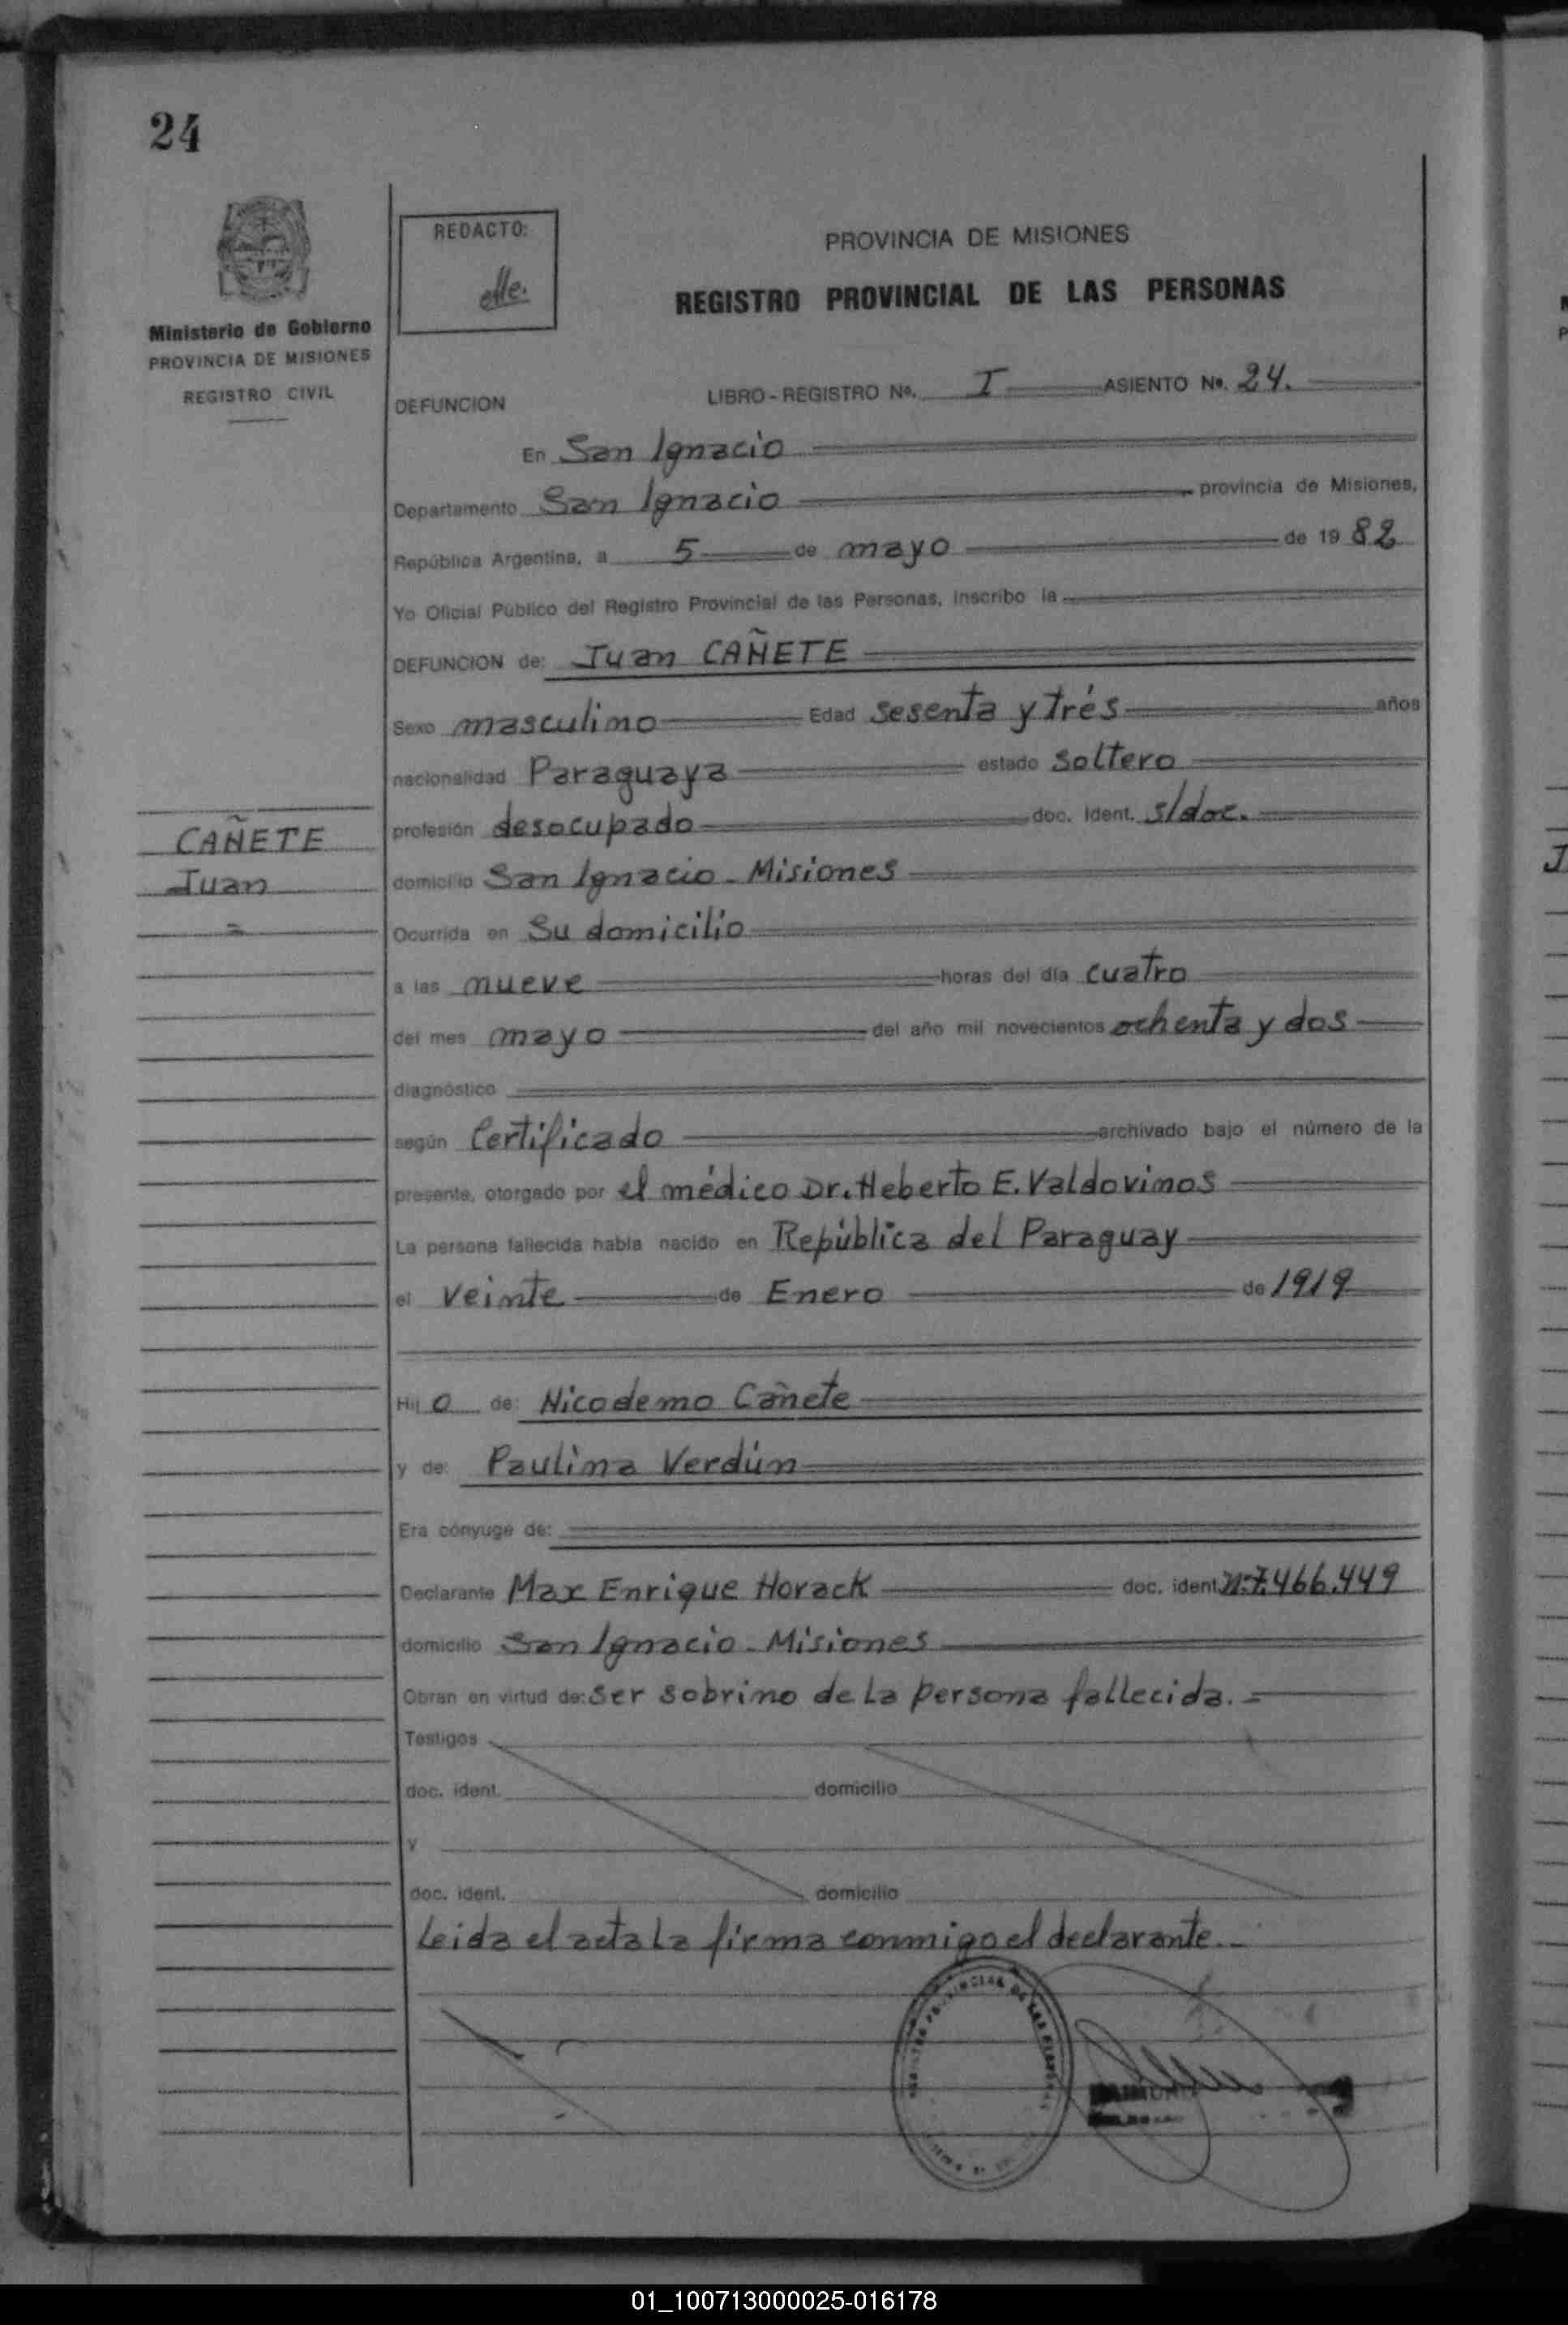 24
Ministerio de Gobierno
PROVINCIA DE MISIONES
REGISTRO CIVIL
REDACTO:
PROVINCIA DE MISIONES
REGISTRO PROVINCIAL DE LAS PERSONAS
DEFUNCION LIBRO-REGISTRO Nº. I ASIENTO Nº. 24.
En San Ignacio
Departamento San Ignacio provincia de Misiones,
República Argentina, a 5 de mayo de 1982
Yo Oficial Público del Registro Provincial de las Personas, inscribo la
DEFUNCION de: Juan CAÑETE
Sexo masculino Edad sesenta y trés años
nacionalidad Paraguaya estado soltero
CAÑETE
Juan
=
profesión desocupado doc. Ident. s/doc.
domicilio San Ignacio - Misiones
Ocurrida en Su domicilio
a las nueve horas del día cuatro
del mes mayo del año mil novecientos ochenta y dos
diagnóstico
según Certificado archivado bajo el número de la
presente, otorgado por el médico Dr. Heberto E. Valdovinos
La persona fallecida había nacido en República del Paraguay
el veinte de Enero de 1919
Hijo de: Nicodemo Cañete
y de: Paulina Verdún
Era cónyuge de:
Declarante Max Enrique Horack doc. ident. Nº 7.466.449
domicilio San Ignacio - Misiones
Obran en virtud de: ser sobrino de la persona fallecida. =
Testigos
doc. ident. domicilio
y
doc. ident. domicilio
Leida el acta la firma conmigo el declarante.-
01_100713000025-016178